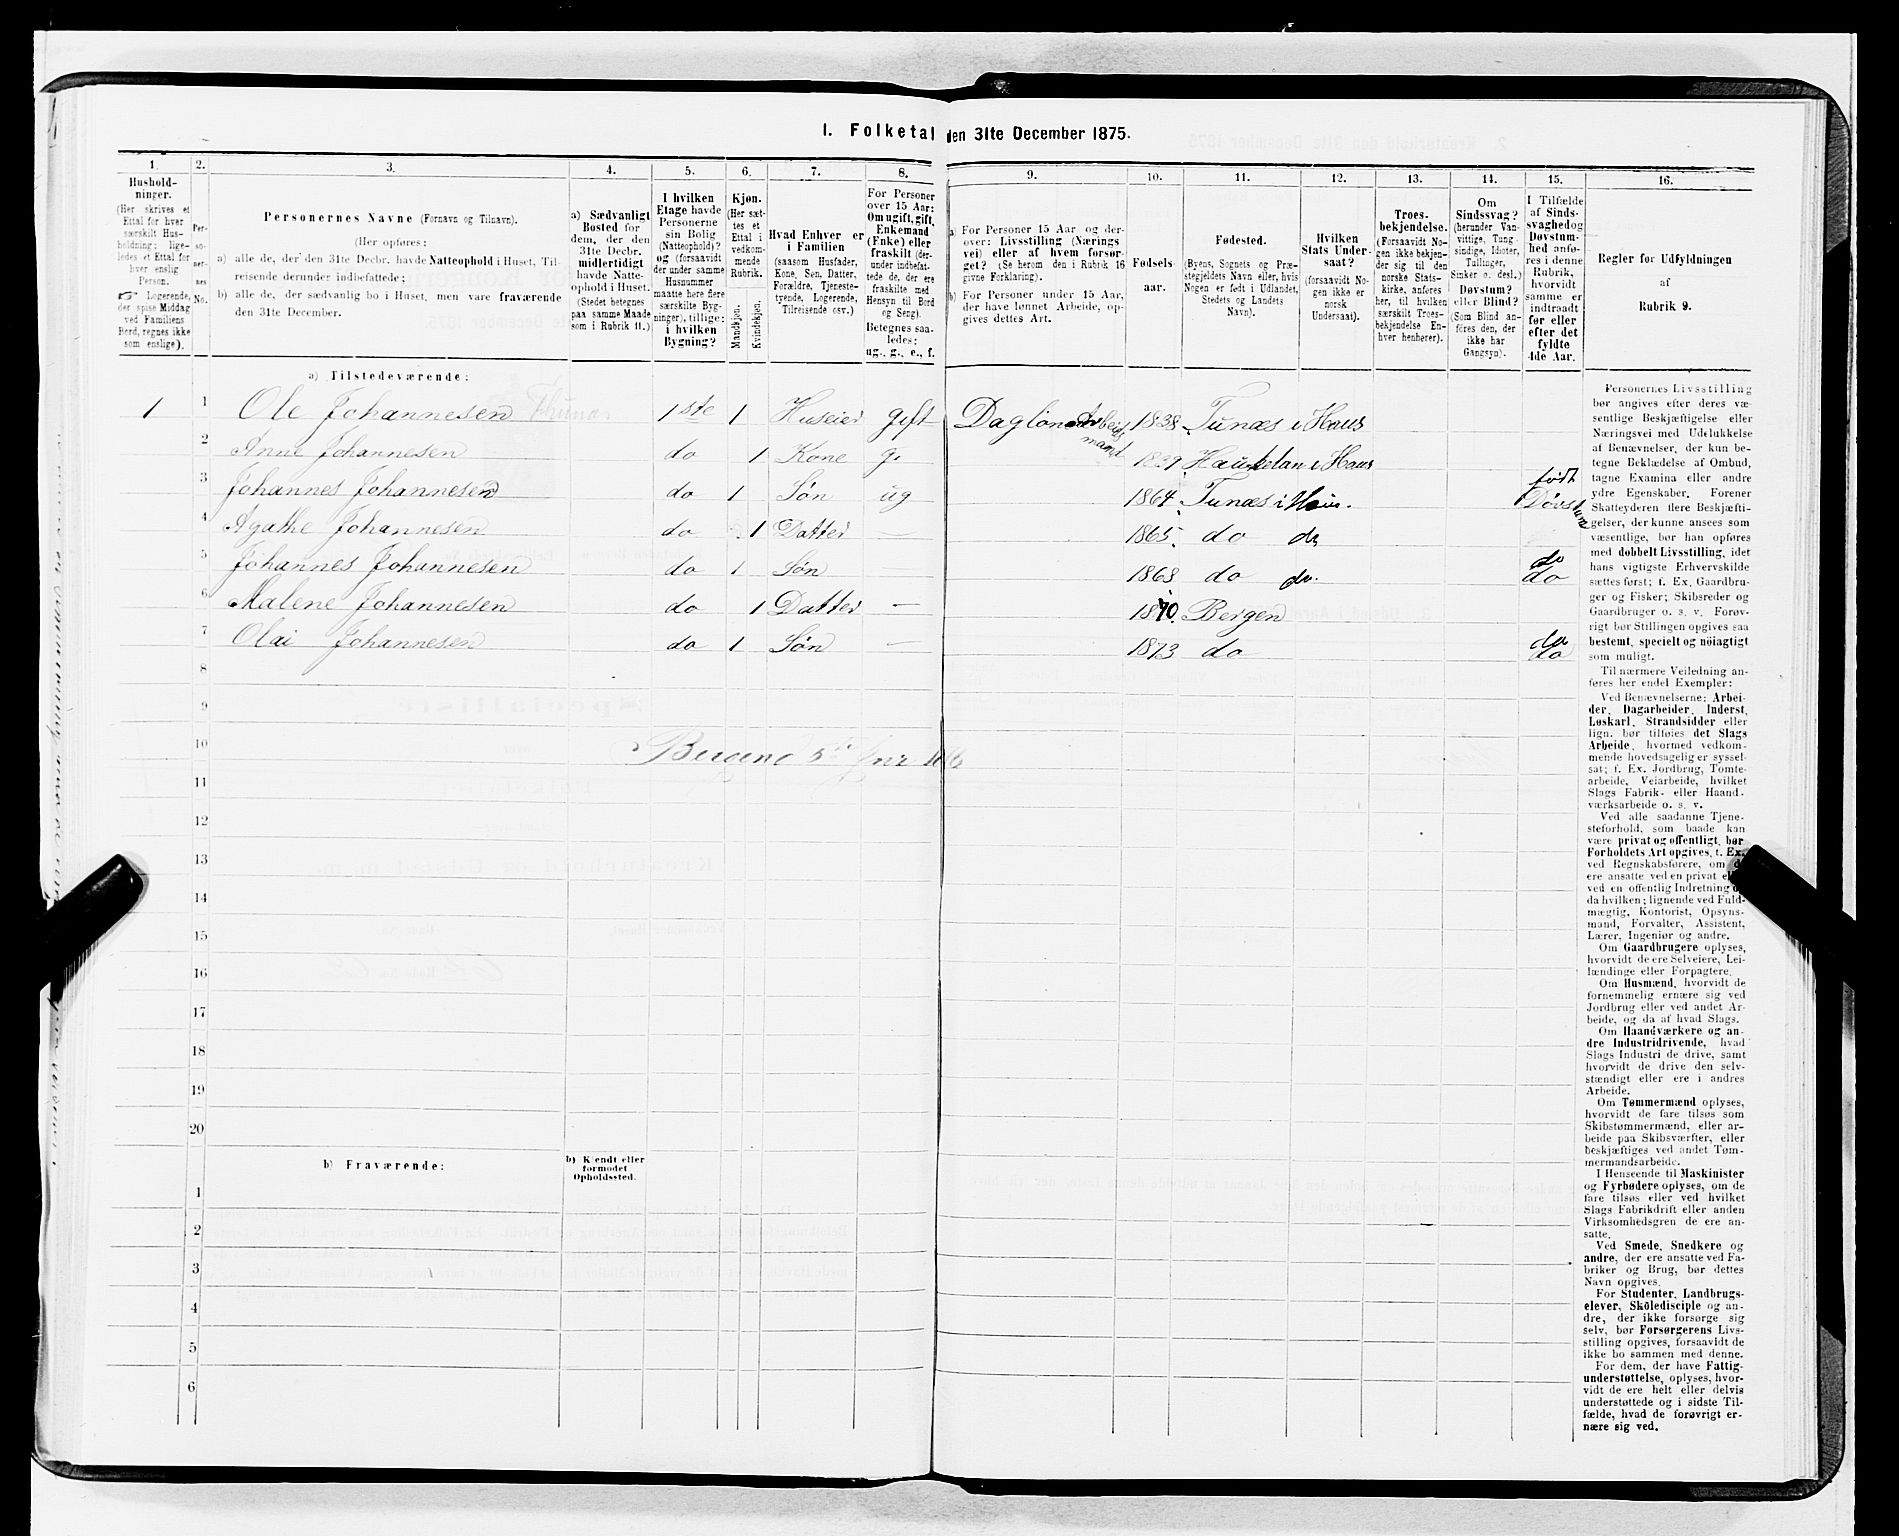 1. Folketal den 31te December 1875.
1.
2.
3.
4.
5.
6.
7.
8.
9.
10.
11.
12.
13.
14.
15.
16.
Hushold-
ninger.
(Her skrives et
Ettal for hver
særskilt Hus-
holdning; lige-
ledes et Ettal for
hver enslig
Person.
☞ Logerende,
der spise Middag
ved Familiens
Bord, regnes ikke
som enslige).
Per-
so-
ner-
nes
No.
Personernes Navne (Fornavn og Tilnavn).
(Her opføres:
a) alle de, der den 31te Decbr. havde Natteophold i Huset, Til-
reisende derunder indbefattede;
b) alle de, der sædvanlig bo i Huset, men vare fraværende
den 31te December.
a) Sædvanligt
Bosted for
dem, der den
31te Decbr.
midlertidigt
havde Natte-
ophold i Huset.
(Stedet betegnes
paa samme Maade
som i Rubrik 11.)
I hvilken
Etage havde
Personerne
sin Bolig
(Natteophold)?
og (forsaavidt
der under samme
Husnummer
maatte høre flere
særskilte Byg-
ninger), tillige:
i hvilken
Bygning?
Kjøn.
(Her sæt-
tes et
Ettal i
vedkom-
mende
Rubrik.
Mandkjøn.
Kvindekjøn.
Hvad Enhver er
i Familien
(saasom Husfader,
Kone, Søn, Datter,
Forældre, Tjeneste-
tyende, Logerende,
Tilreisende osv.)
For Personer
over 15 Aar:
Om ugift, gift,
Enkemand
(Enke) eller
fraskilt (der-
under indbefat-
tede de, der ere
fraskilte med
Hensyn til Bord
og Seng).
Betegnes saa-
ledes:
ug., g., e., f.
a) For Personer 15 Aar og der-
over: Livsstilling (Nærings
vei) eller af hvem forsør-
get? (Se herom den i Rubrik 16
givne Forklaring).
b) For Personer under 15 Aar,
der have lønnet Arbeide, op-
gives dettes Art.
Fødsels-
aar.
Fødested.
(Byens, Sognets og Præ-
stegjeldets Navn eller, hvis
Nogen er født i Udlandet,
Stedets og Landets
Navn).
Hvilken
Stats Under-
saat?
(forsaavidt No-
gen ikke er
norsk
Undersaat).
Troes-
bekjendelse.
(Forsaavidt No-
gen ikke bekjen-
der sig til den
norske Stats-
kirke, anføres
her, til hvilken
særskilt Troes-
bekjendelse En-
hver henhører).
Om
Sindssvag?
(herunder Van-
vittige, Tung-
sindige, Idioter,
Tullinger,
Sinker o. desl.)
Døvstum?
eller Blind?
(Som Blind an-
føres den, der
ikke har
Gangsyn).
I Tilfælde
af Sinds-
svaghed og
Døvstum-
hed anfø-
res i denne
Rubrik,
hvorvidt
samme er
indtraadt
før eller
efter det
fyldte
4de Aar.
Regler for Udfyldningen
af
Rubrik 9.
a) Tilstedeværende:
1 1 Ole Johannesen Thunæs 1ste 1 Huseier gift Daglønner Arbeids mand 1838 Tunæs i Haus
2 Anne Johannesen do 1 Kone g. 1839 Haukelan i Haus
3 Johannes Johannesen do 1 Søn ug 1864 Tunæs i Haus. født Døvstum
4 Agathe Johannesen do 1 Datter — 1865. do do
5 Johannes Johannesen do 1 Søn — 1868 do do. do do
6 Malene Johannesen do 1 Datter — 1870. Bergen
7 Olai Johannesen do 1 Søn — 1873 do do do
8
9
10 Bergen d 5te
11
12
13
14
15
16
17
18
19
20
b) Fraværende:
b) Kjendt eller
formodet
Opholdssted.
1
2
3
4
5
6
Personernes Livsstilling
bør angives efter deres væ-
sentlige Beskjæftigelse eller
Næringsvei med Udelukkelse
af Benævnelser, der kun be-
tegne Beklædelse af Ombud,
tagne Examina eller andre
ydre Egenskaber. Forener
Skatteyderen flere Beskjæfti-
gelser, der kunne ansees som
væsentlige, bør han opføres
med dobbelt Livsstilling, idet
hans vigtigste Erhvervskilde
sættes først; f. Ex. Gaardbru-
ger og Fisker; Skibsreder og
Gaardbruger o. s. v. Forøv-
rigt bør Stillingen opgives saa
bestemt, specielt og nöiagtigt
som muligt.
Til nærmere Veiledning an-
føres her endel Exempler:
Ved Benævnelserne: Arbei-
der, Dagarbeider, Inderst,
Løskarl, Strandsidder eller
lign. bør tilføies det Slags
Arbeide, hvormed vedkom-
mende hovedsagelig er syssel-
sat; f. Ex. Jordbrug, Tomte-
arbeide, Veiarbeide, hvilket
Slags Fabrik- eller Haand-
værksarbeide o. s. v.
Ved alle saadanne Tjene-
steforhold, som baade kan
være privat og offentligt, bør
Forholdets Art opgives, f. Ex.
ved Regnskabsførere, om de
ere ansatte ved en privat eller
ved en offentlig Indretning og
da hvilken; lignende ved Fuld-
mægtig, Kontorist, Opsyns-
mand, Forvalter, Assistent,
Lærer, Ingeniør og andre.
Om Gaardbrugere oplyses,
hvorvidt de ere Selveiere, Lei-
lændinge eller Forpagtere.
Om Husmænd, hvorvidt de
fornemmelig ernære sig ved
Jordbrug eller ved andet Ar-
beide, og da af hvad Slags.
Om Haandværkere og an-
dre Industridrivende, hvad
Slags Industri de drive, samt
hvorvidt de drive den selv-
stændigt eller ere i andres
Arbeide.
Om Tømmermænd oplyses,
hvorvidt de fare tilsøs som
Skibstømmermænd, eller ar-
beide paa Skibsværfter, eller
beskjæftiges ved andet Tøm-
mermandsarbeide.
I Henseende til Maskinister
og Fyrbødere oplyses, om de
fare tilsøs eller ved hvilket
Slags Fabrikdrift eller anden
Virksomhedsgren de ere an-
satte.
Ved Smede, Snedkere og
andre, der ere ansatte ved Fa-
briker og Brug, bør dettes
Navn opgives.
For Studenter, Landbrugs-
elever, Skōledisciple og an-
dre, der ikke forsørge sig
selv, bør Forsørgerens Livs-
stilling opgives, forsaavidt de
ikke bo sammen med denne.
For dem, der have Fattig-
understøttelse, oplyses, hvor-
vidt de ere helt eller delvis
understøttede og i sidste Til-
fælde, hvad de forøvrigt er-
nære sig ved.